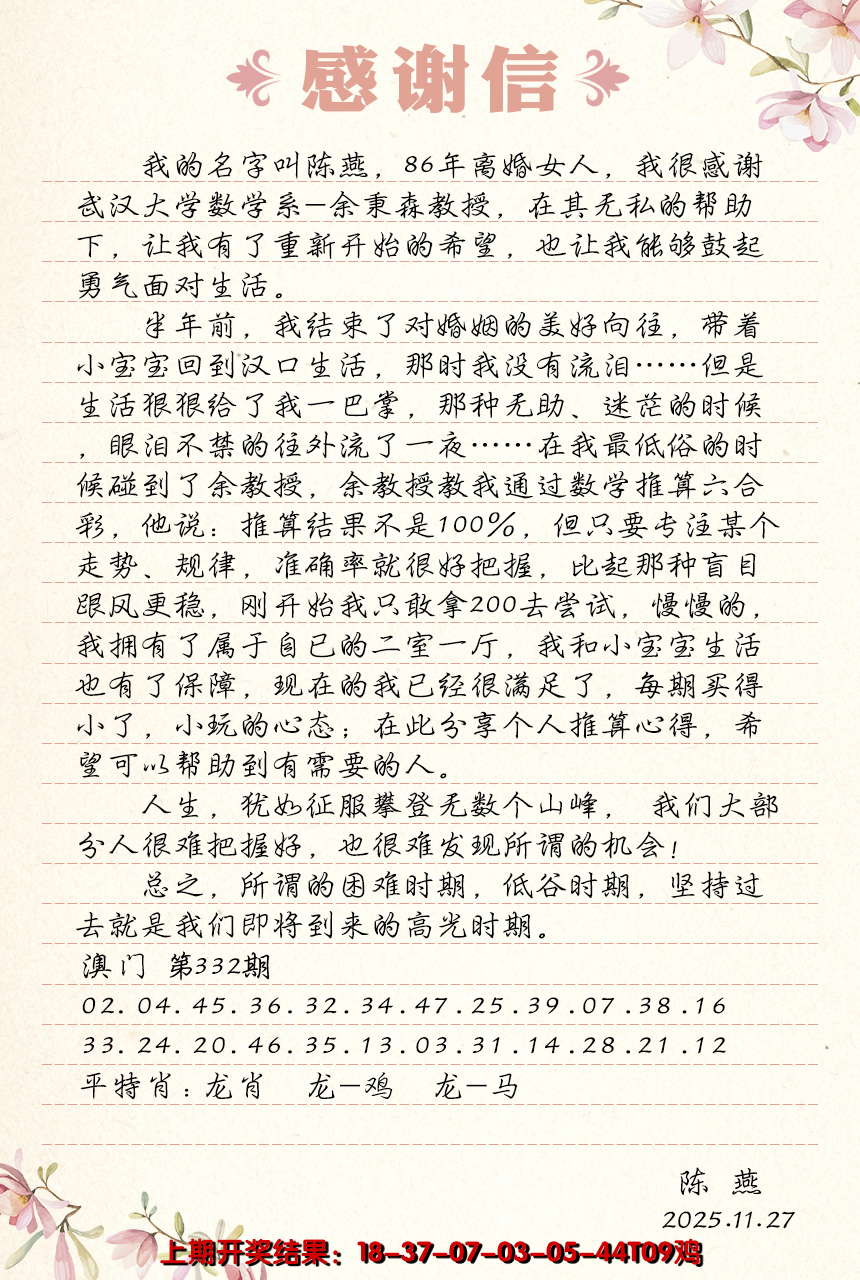 感谢信
我的名字叫陈燕，86年离婚女人，我很感谢
武汉大学数学系-余秉森教授，在其无私的帮助
下，让我有了重新开始的希望，也让我能够鼓起
勇气面对生活。
半年前，我结束了对婚姻的美好向往，带着
小宝宝回到汉口生活，那时我没有流泪……但是
生活狠狠给了我一巴掌，那种无助、迷茫的时候
，眼泪不禁的往外流了一夜……在我最低俗的时
候碰到了余教授，余教授教我通过数学推算六合
彩，他说：推算结果不是100%，但只要专注某个
走势、规律，准确率就很好把握，比起那种盲目
跟风更稳，刚开始我只敢拿200去尝试，慢慢的，
我拥有了属于自已的二室一厅，我和小宝宝生活
也有了保障，现在的我已经很满足了，每期买得
小了，小玩的心态；在此分享个人推算心得，希
望可以帮助到有需要的人。
人生，犹如征服攀登无数个山峰， 我们大部
分人很难把握好，也很难发现所谓的机会！
总之，所谓的困难时期，低谷时期，坚持过
去就是我们即将到来的高光时期。
澳门 第332期
02.04.45.36.32.34.47.25.39.07.38.16
33.24.20.46.35.13.03.31.14.28.21.12
平特肖：龙肖 龙-鸡 龙-马
陈 燕
2025.11.27
上期开奖结果：18-37-07-03-05-44T09鸡